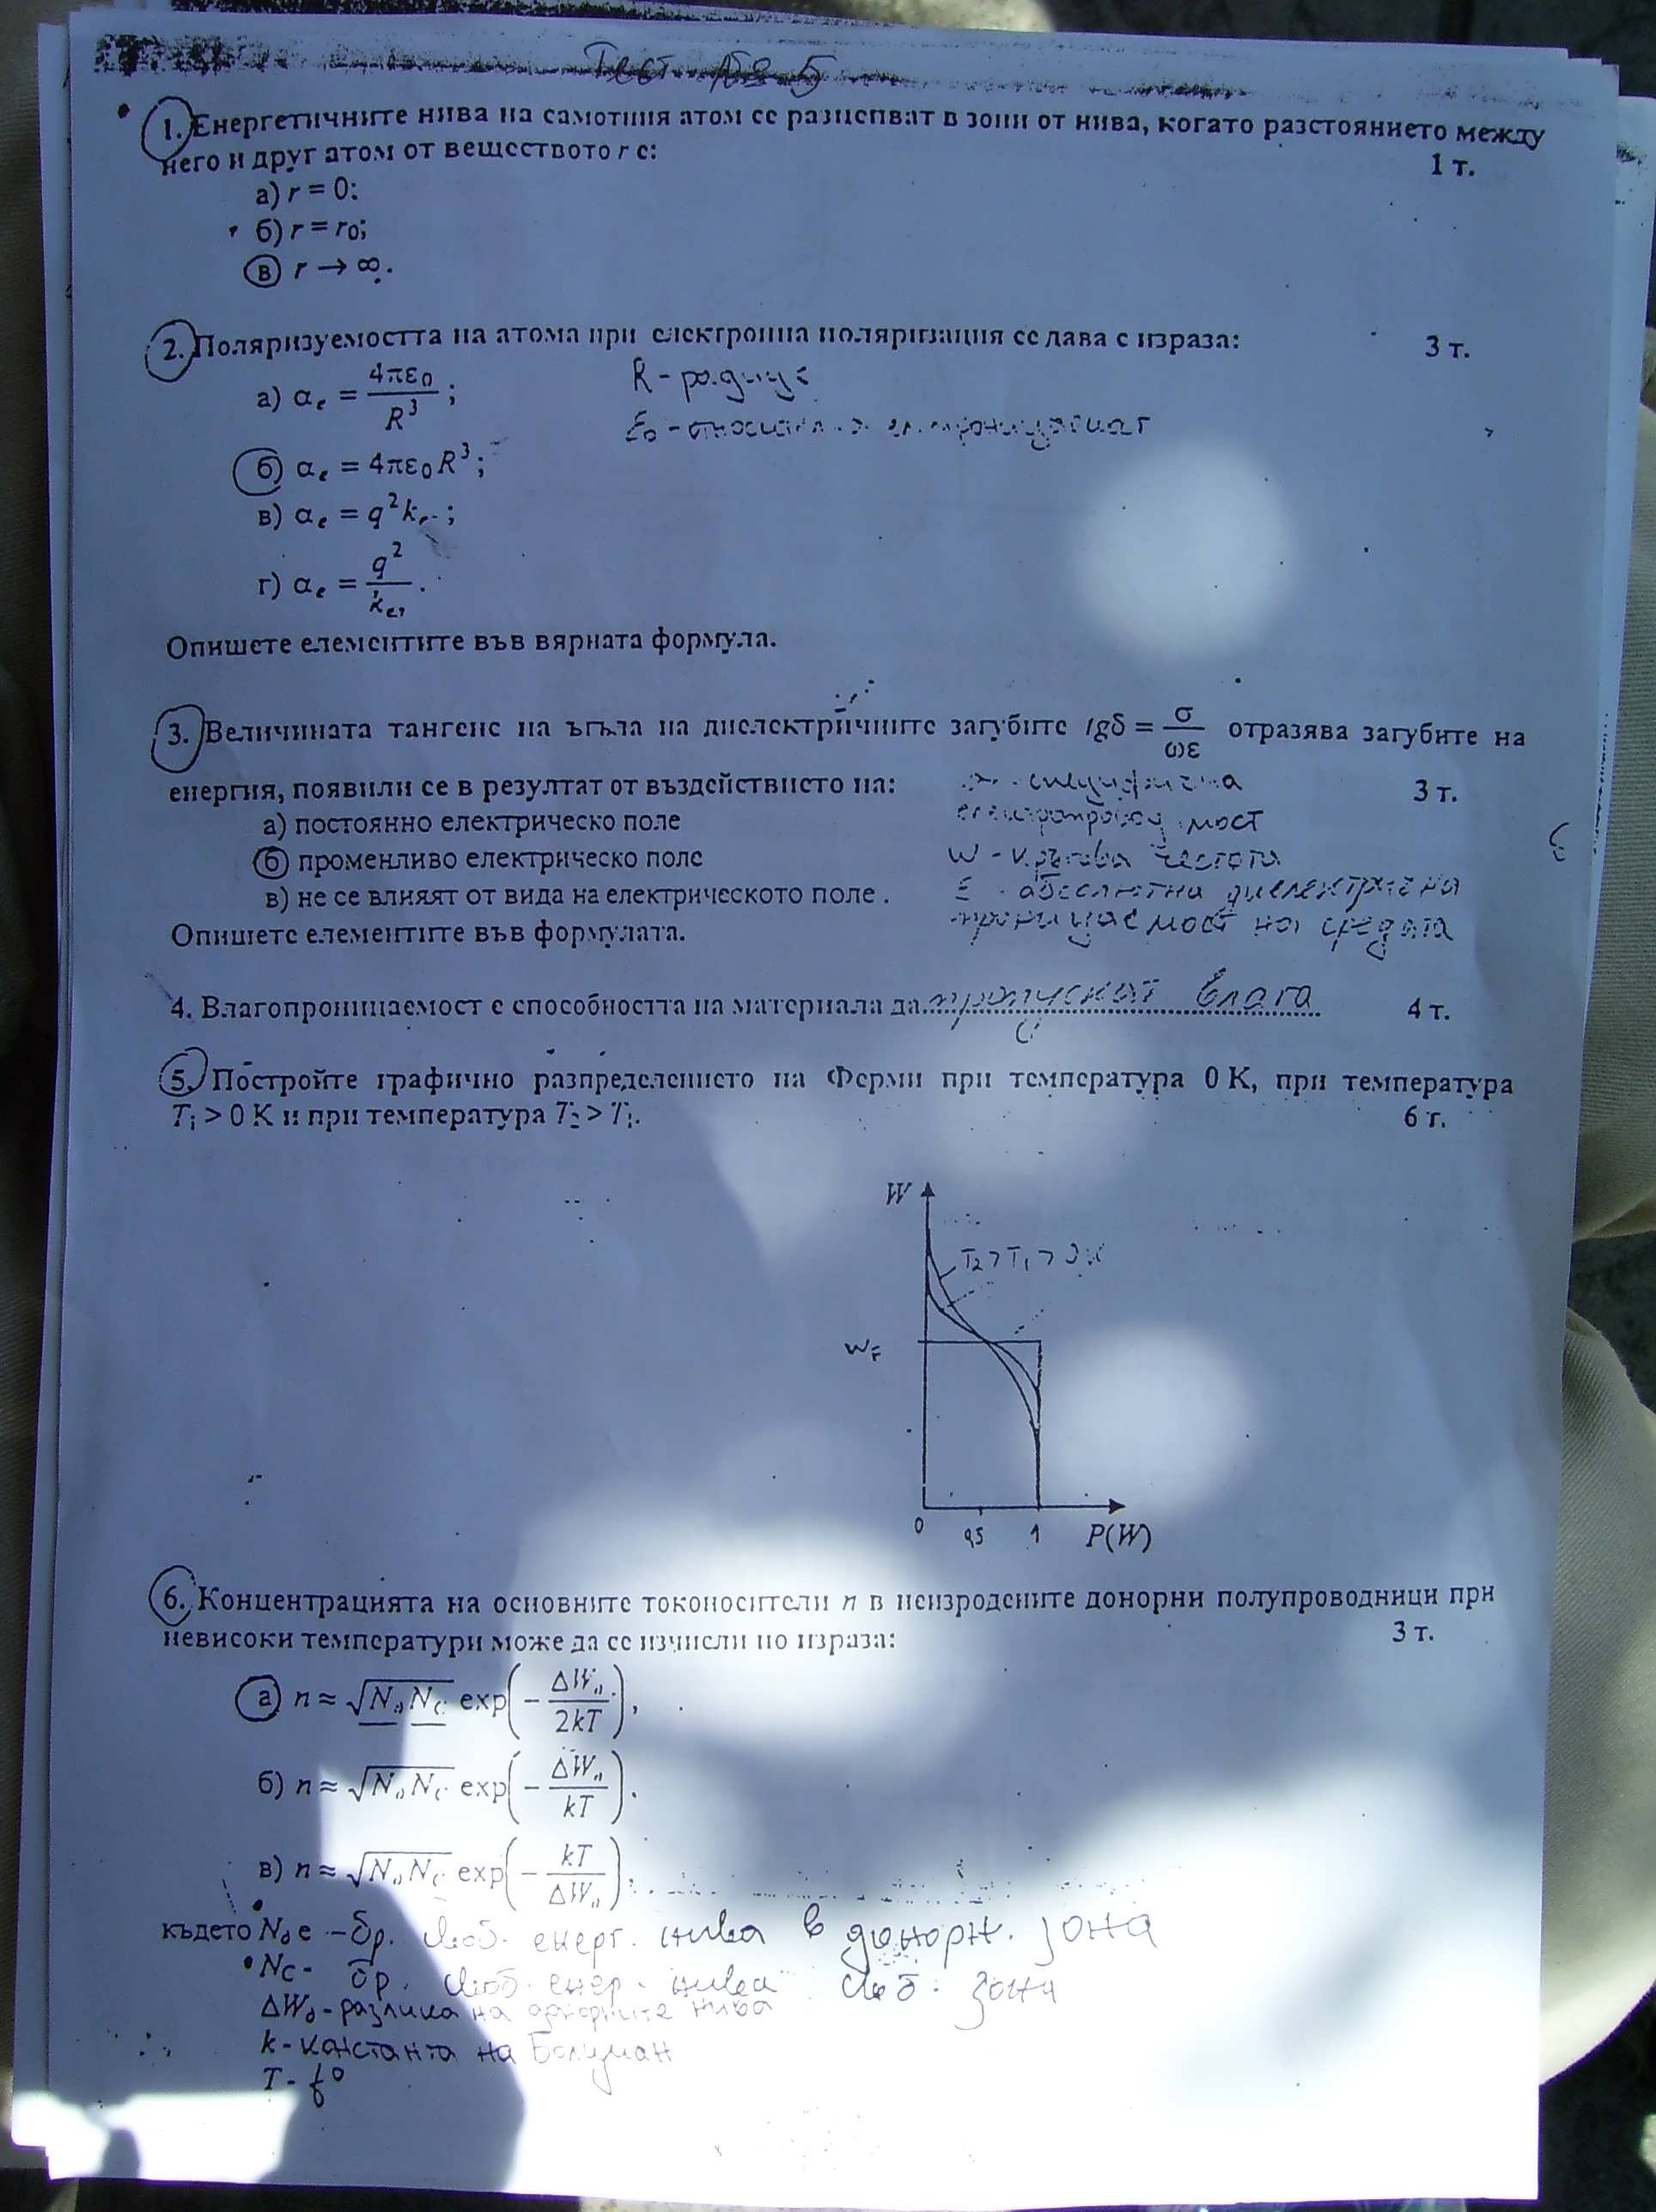 Тест № 5
1. Енергетичните нива на самотния атом се разцепват в зони от нива, когато разстоянието между
него и друг атом от веществото r е: 1 т.
а) r = 0;
б) r = r₀;
в) r → ∞.
2. Поляризуемостта на атома при електронна поляризация се дава с израза: 3 т.
а) αₑ = 4πε₀ / R³ ;
R - радиус
ε₀ -
б) αₑ = 4πε₀R³ ;
в) αₑ = q²kₑ ;
г) αₑ = q² / kₑ .
Опишете елементите във вярната формула.
3. Величината тангенс на ъгъла на диелектричните загубите tgδ = σ / ωε отразява загубите на
енергия, появили се в резултат от въздействието на: 3 т.
σ - специфична
а) постоянно електрическо поле
електропроводимост
б) променливо електрическо поле
w - кръгова честота
в) не се влияят от вида на електрическото поле .
ε - абсолютна диелектрична
Опишете елементите във формулата.
проницаемост на средата
4. Влагопроницаемост е способността на материала да пропускат влага 4 т.
5. Постройте графично разпределението на Ферми при температура 0 K, при температура
T₁ > 0 K и при температура T₂ > T₁. 6 т.
W
T₂ > T₁ > 0K
W_F
0 0,5 1 P(W)
6. Концентрацията на основните токоносители n в неизродените донорни полупроводници при
невисоки температури може да се изчисли по израза: 3 т.
а) n ≈ √(NдNC) exp(− ΔWд / 2kT),
б) n ≈ √(NдNC) exp(− ΔWд / kT).
в) n ≈ √(NдNC) exp(− kT / ΔWд),
където Nд е - бр. своб. енерг. нива в донорн. зона
NC - бр. своб. енер. нива своб. зона
ΔWд - разлика на донорните нива
k - константа на Болцман
T - t°